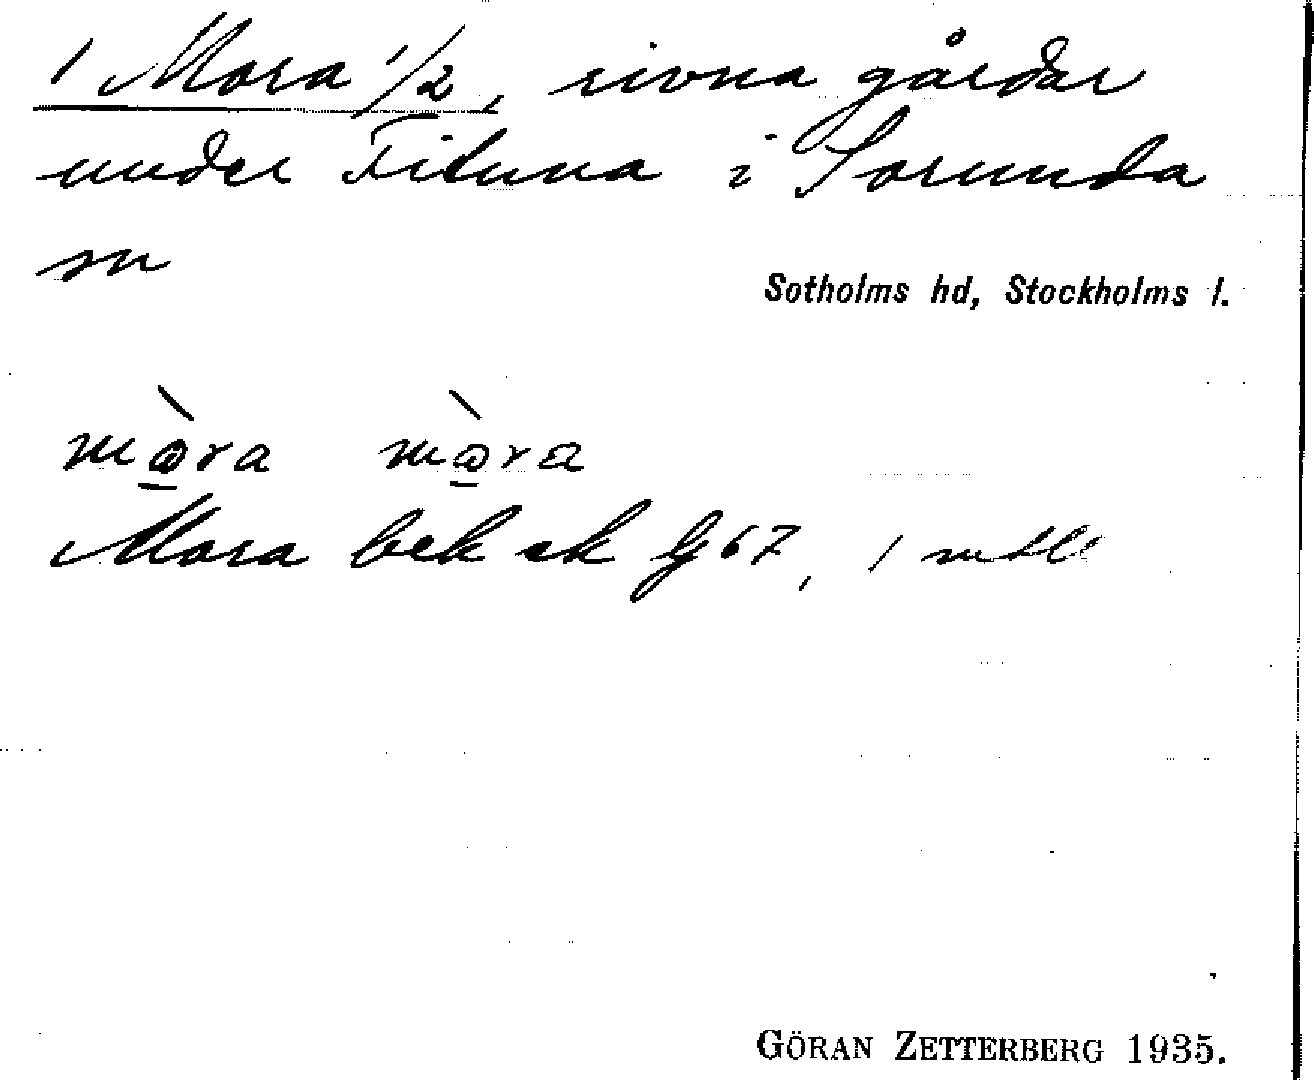 1 Mora 1/2, rivna gårdar
under Fituna i Sorunda
sn
Sotholms hd, Stockholms l.
mòra mòra
Mora bek ek G 67, 1 mtl
GÖRAN ZETTERBERG 1935.